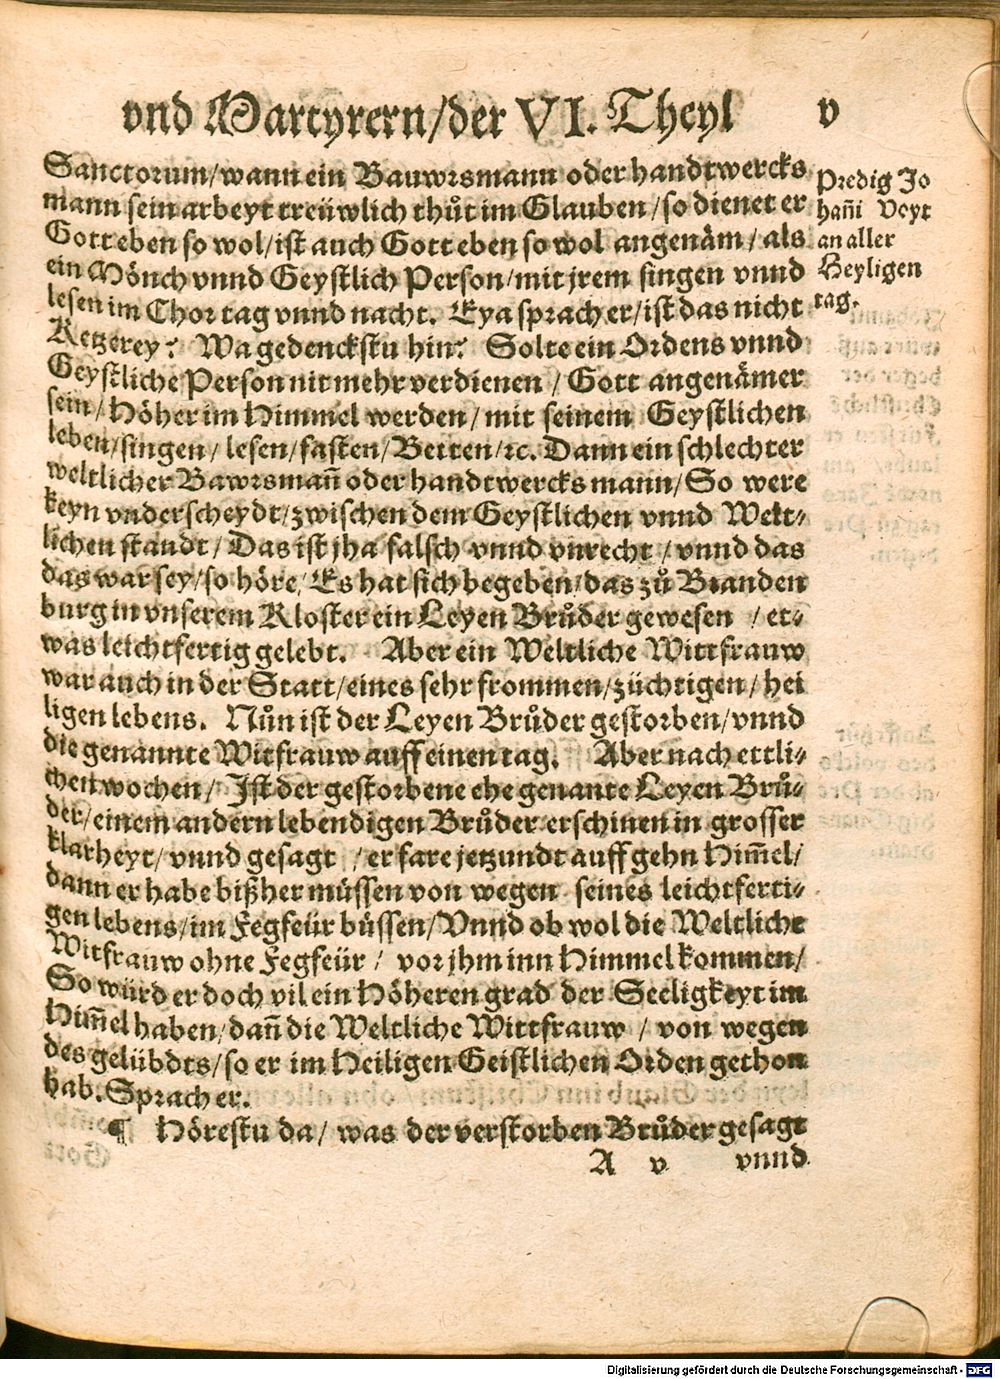 vnd Martyrern/der VI. Theyl v
Sanctorum/wann ein Bauwrsmann oder handtwercks
mann sein arbeyt treüwlich thůt im Glauben/so dienet er
Gott eben so wol/ist auch Gott eben so wol angenäm/als
ein Mönch vnnd Geystlich Person/mit jrem singen vnnd
lesen im Chor tag vnnd nacht. Eya sprach er/ist das nicht
Ketzerey? Wa gedenckstu hin? Solte ein Ordens vnnd
Geystliche Person nit mehr verdienen/Gott angenämer
sein/Höher im Himmel werden/mit seinem Geystlichen
leben/singen/lesen/fasten/Betten/ꝛc. Dann ein schlechter
weltlicher Bawrsmañ oder handtwercks mann/So were
keyn vnderscheydt/zwischen dem Geystlichen vnnd Welt-
lichen standt/Das ist jha falsch vnnd vnrecht/vnnd das
das war sey/so höre/Es hat sich begeben/das zů Branden
burg in vnserem Kloster ein Leyen Brůder gewesen/et-
was leichtfertig gelebt. Aber ein Weltliche Wittfrauw
war auch in der Statt/eines sehr frommen/züchtigen/hei
ligen lebens. Nůn ist der Leyen Brůder gestorben/vnnd
die genannte Witfrauw auff einen tag. Aber nach ettli-
chen wochen/Jst der gestorbene ehe genante Leyen Brů-
der/einem andern lebendigen Brůder erschinen in grosser
klarheyt/vnnd gesagt/er fare jetzundt auff gehn Him̃el/
dann er habe bißher müssen von wegen seines leichtferti-
gen lebens/im Fegfeür büssen/Vnnd ob wol die Weltliche
Witfrauw ohne Fegfeür/vor jhm inn Himmel kommen/
So würd er doch vil ein Höheren grad der Seeligkeyt im
Him̃el haben/dañ die Weltliche Wittfrauw/von wegen
des gelübdts/so er im Heiligen Geistlichen Orden gethon
hab. Sprach er.
¶ Hörestu da/was der verstorben Brůder gesagt
A v vnnd
Predig Jo
hañi Voyt
an aller
Heyligen
tag.
Digitalisierung gefördert durch die Deutsche Forschungsgemeinschaft - DFG